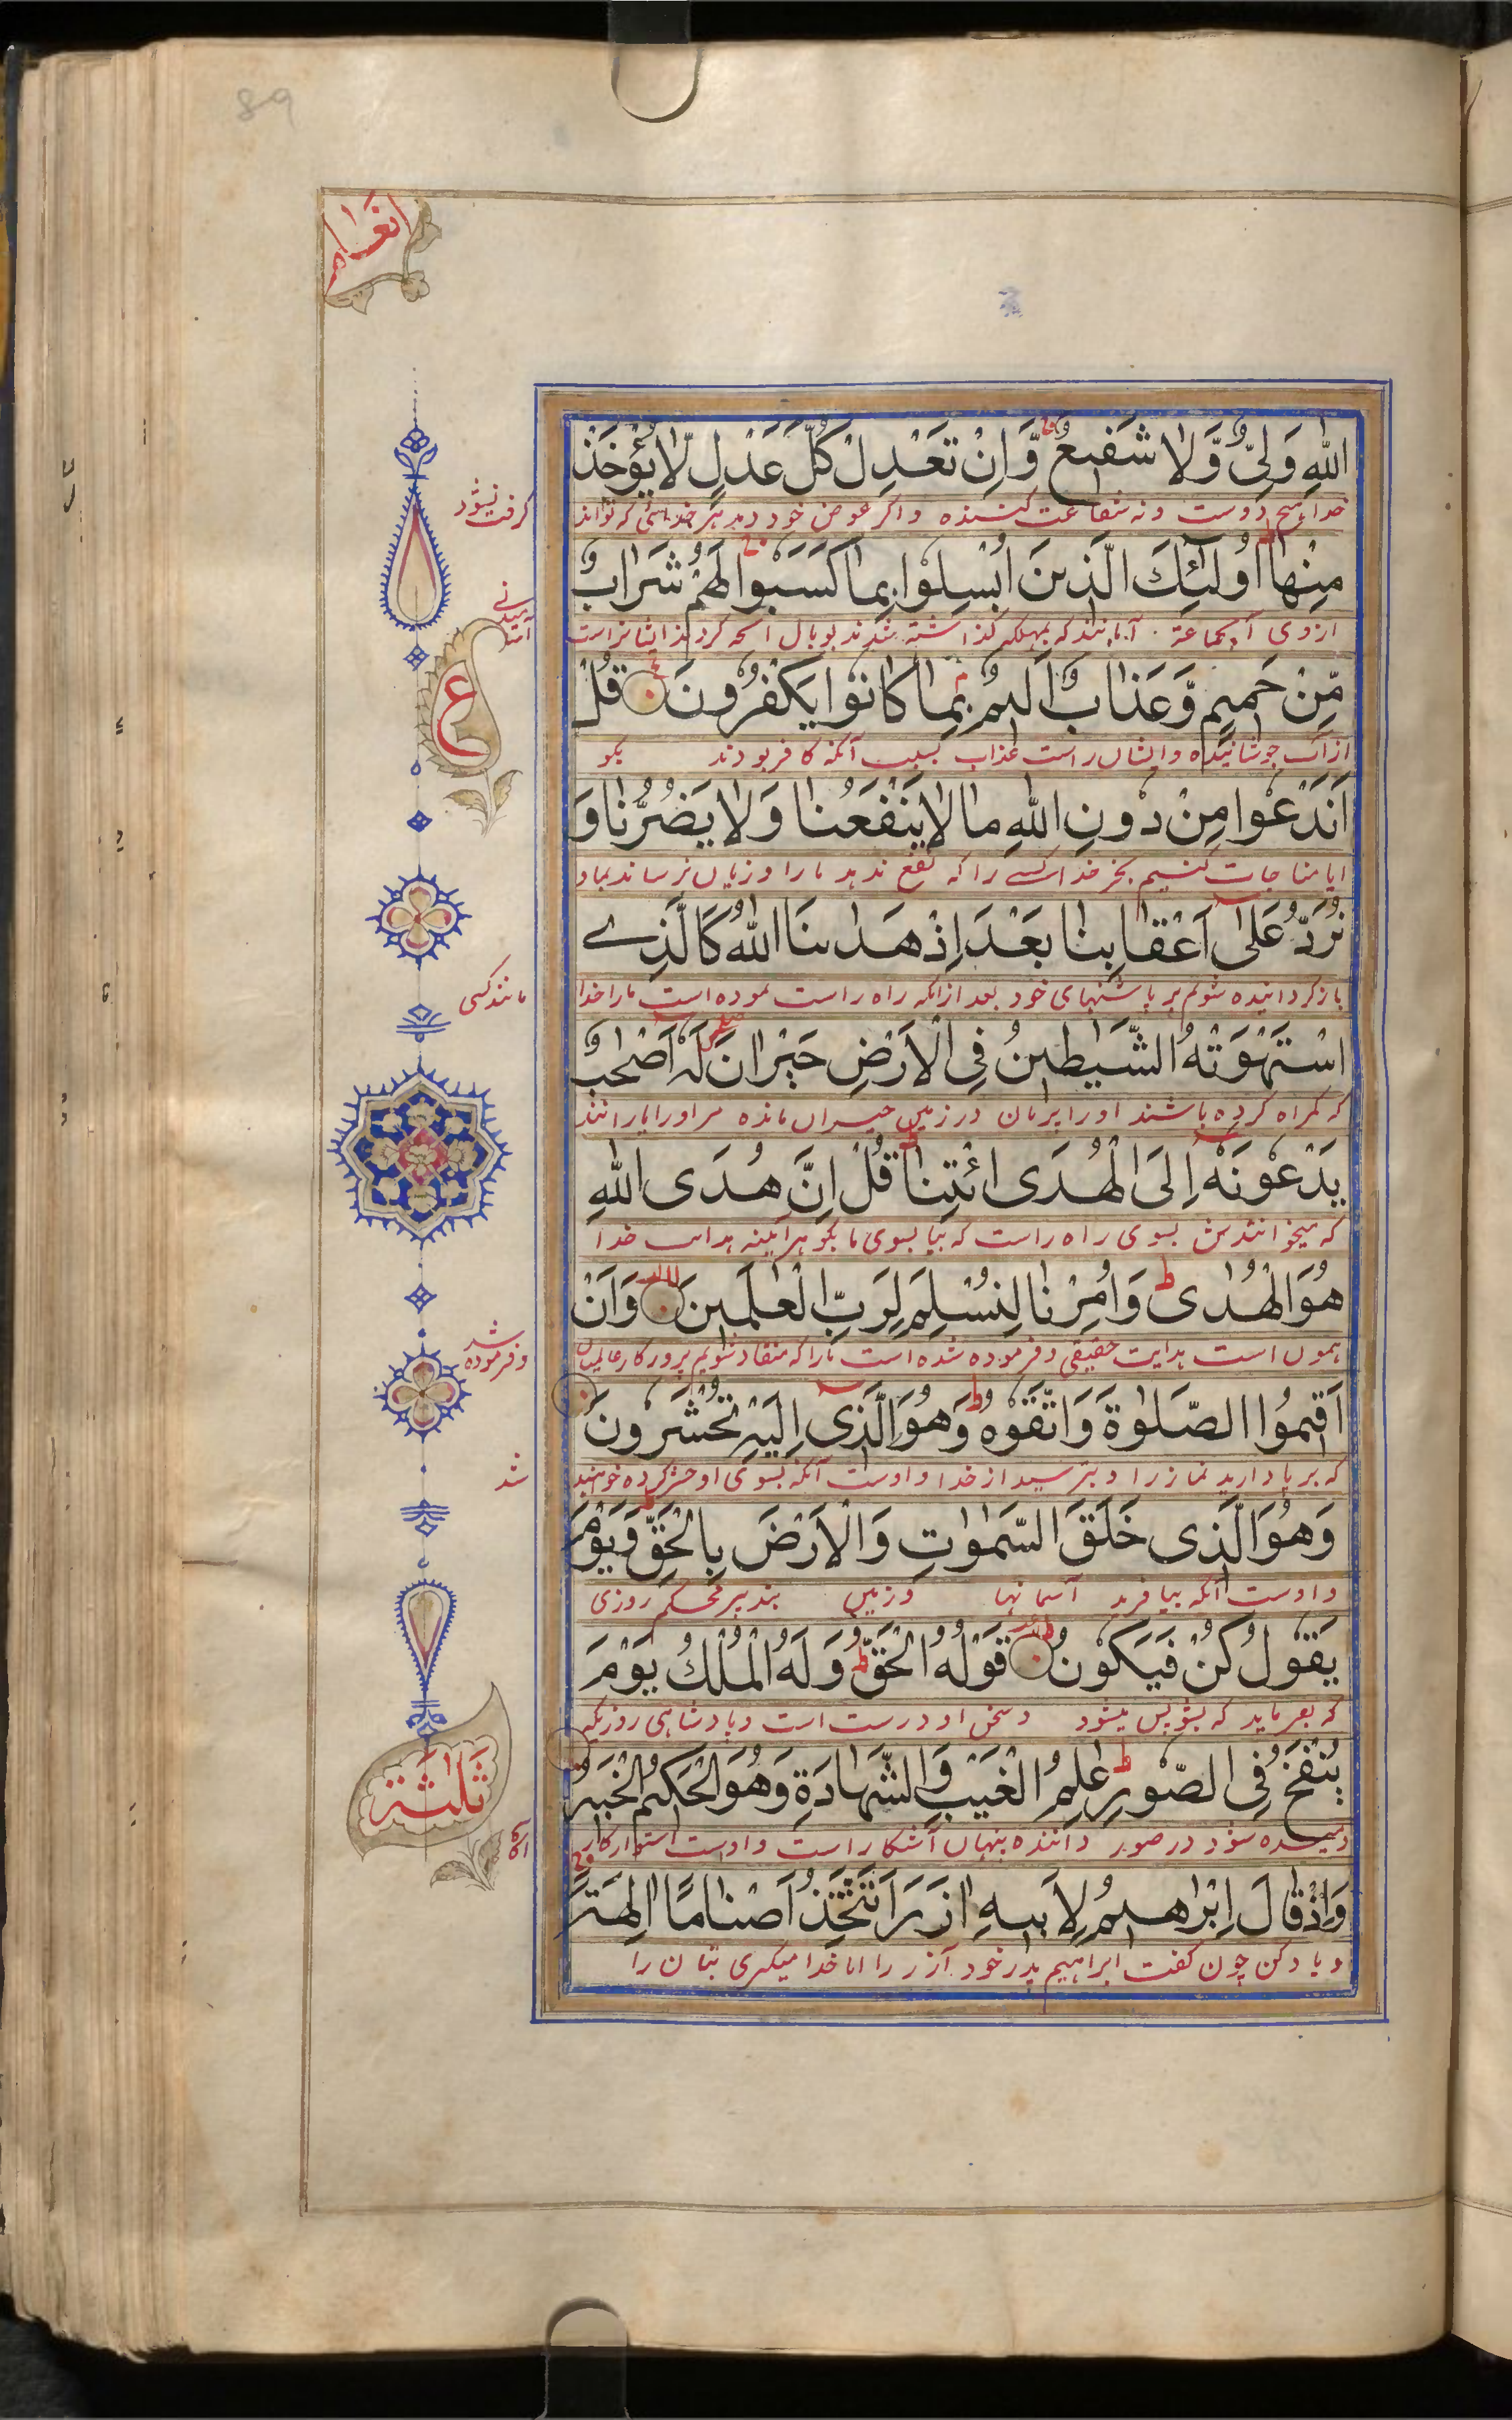 89
انعام
اللهِ وَلِيٌّ وَّلَا شَفِيعٌ ۚ وَّاِنْ تَعْدِلْ كُلَّ عَدْلٍ لَّا يُؤْخَذْ
خدا هیچ دوست و نه شفاعت کننده و اگر عوض خود دهد هر که تواند
گرفت نیشود
مِنْهَا اُولٰئِكَ الَّذِينَ اُبْسِلُوا بِمَا كَسَبُوا لَهُمْ شَرَابٌ
ازوی آنجماعة آنانند که بمهلکه گذاشته شدند بوبال آنچه کردند ایشانراست
آشامیدنی
مِّنْ حَمِيمٍ وَّعَذَابٌ اَلِيمٌ بِمَا كَانُوا يَكْفُرُونَ قُلْ
ع
از آب جوشانیده و ایشان راست عذاب بسبب آنکه کافر بودند بگو
اَنَدْعُوا مِنْ دُونِ اللهِ مَا لَا يَنْفَعُنَا وَلَا يَضُرُّنَا وَ
ایا مناجات کنیم بجز خدا کسی را که نفع ندهد مارا و زیان نرساند بما و
نُرَدُّ عَلٰى اَعْقَابِنَا بَعْدَ اِذْ هَدٰىنَا اللهُ كَالَّذِے
باز گردانیده شویم بر پاشنهای خود بعد ازانکه راه راست نموده است مارا خدا
مانند کسی
اسْتَهْوَتْهُ الشَّيٰطِينُ فِى الْاَرْضِ حَيْرَانَ لَهٗ اَصْحٰبٌ
که گمراه کرده باشند اورا در زمین حیران مانده مر اورا یارانند
يَدْعُونَهٗ اِلَى الْهُدَى ائْتِنَا ۗ قُلْ اِنَّ هُدَى اللهِ
که میخوانندش بسوی راه راست که بیا بسوی ما بگو هرآئینه هدایت خدا
هُوَ الْهُدٰى ۗ وَاُمِرْنَا لِنُسْلِمَ لِرَبِّ الْعٰلَمِينَ وَاَنْ
همون است هدایت حقیقی و فرموده شده است مارا که منقاد شویم پروردگار عالمیان
و فرموده شد
اَقِيمُوا الصَّلٰوةَ وَاتَّقُوهُ ۗ وَهُوَ الَّذِى اِلَيْهِ تُحْشَرُونَ
که برپا دارید نماز را و بترسید از خدا و اوست آنکه بسوی او حشر کرده خواهید
شد
وَهُوَ الَّذِى خَلَقَ السَّمٰوٰتِ وَالْاَرْضَ بِالْحَقِّ ۗ وَيَوْمَ
و اوست آنکه بیافرید آسمانها و زمین بتدبیر محکم روزی
يَقُولُ كُنْ فَيَكُونُ قَوْلُهُ الْحَقُّ ۗ وَلَهُ الْمُلْكُ يَوْمَ
که بفرماید که بشو پس میشود و سخن او درست است و پادشاهی روزیکه
يُنْفَخُ فِى الصُّورِ ۗ عٰلِمُ الْغَيْبِ وَالشَّهَادَةِ وَهُوَ الْحَكِيمُ الْخَبِيرُ
ثلثة
دمیده شود در صور داننده پنهان آشکار است و اوست استوار کار
آگاه
وَاِذْ قَالَ اِبْرٰهِيمُ لِاَبِيهِ اٰزَرَ اَتَتَّخِذُ اَصْنَامًا اٰلِهَةً
و یاد کن چون گفت ابراهیم پدر خود آزر را ایا خدا میگیری بتان را